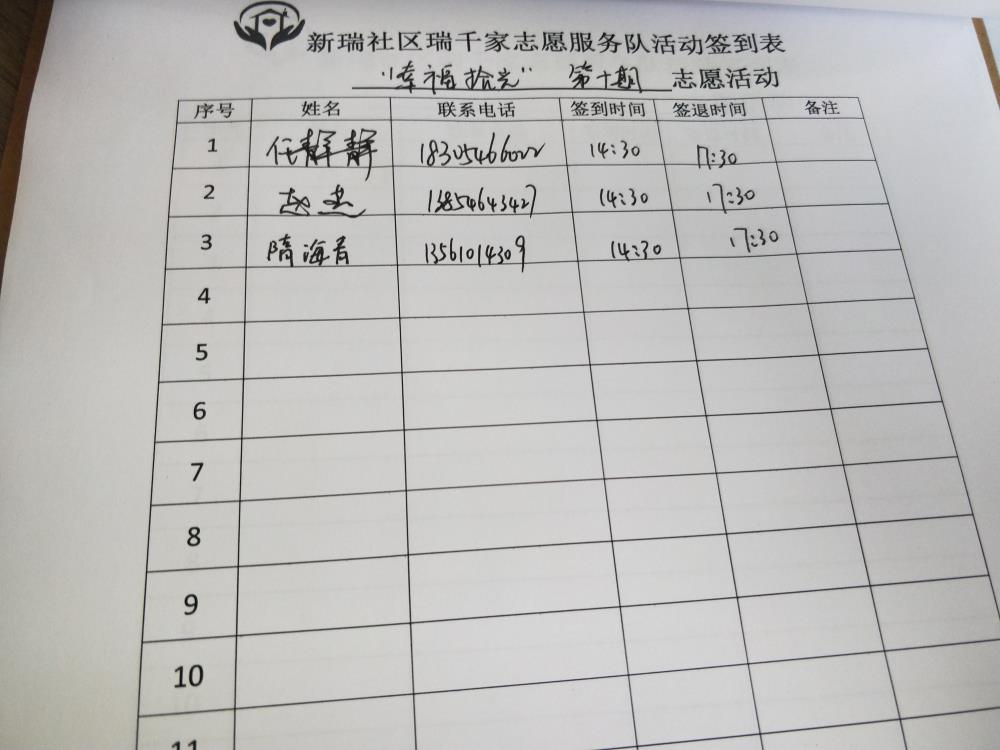 新瑞社区瑞千家志愿服务队活动签到表
“幸福拾光” 第十期 志愿活动
序号 姓名 联系电话 签到时间 签退时间 备注
1 任静静 18305466022 14:30 17:30
2 赵杰 13854643427 14:30 17:30
3 隋海青 13561014309 14:30 17:30
4
5
6
7
8
9
10
11